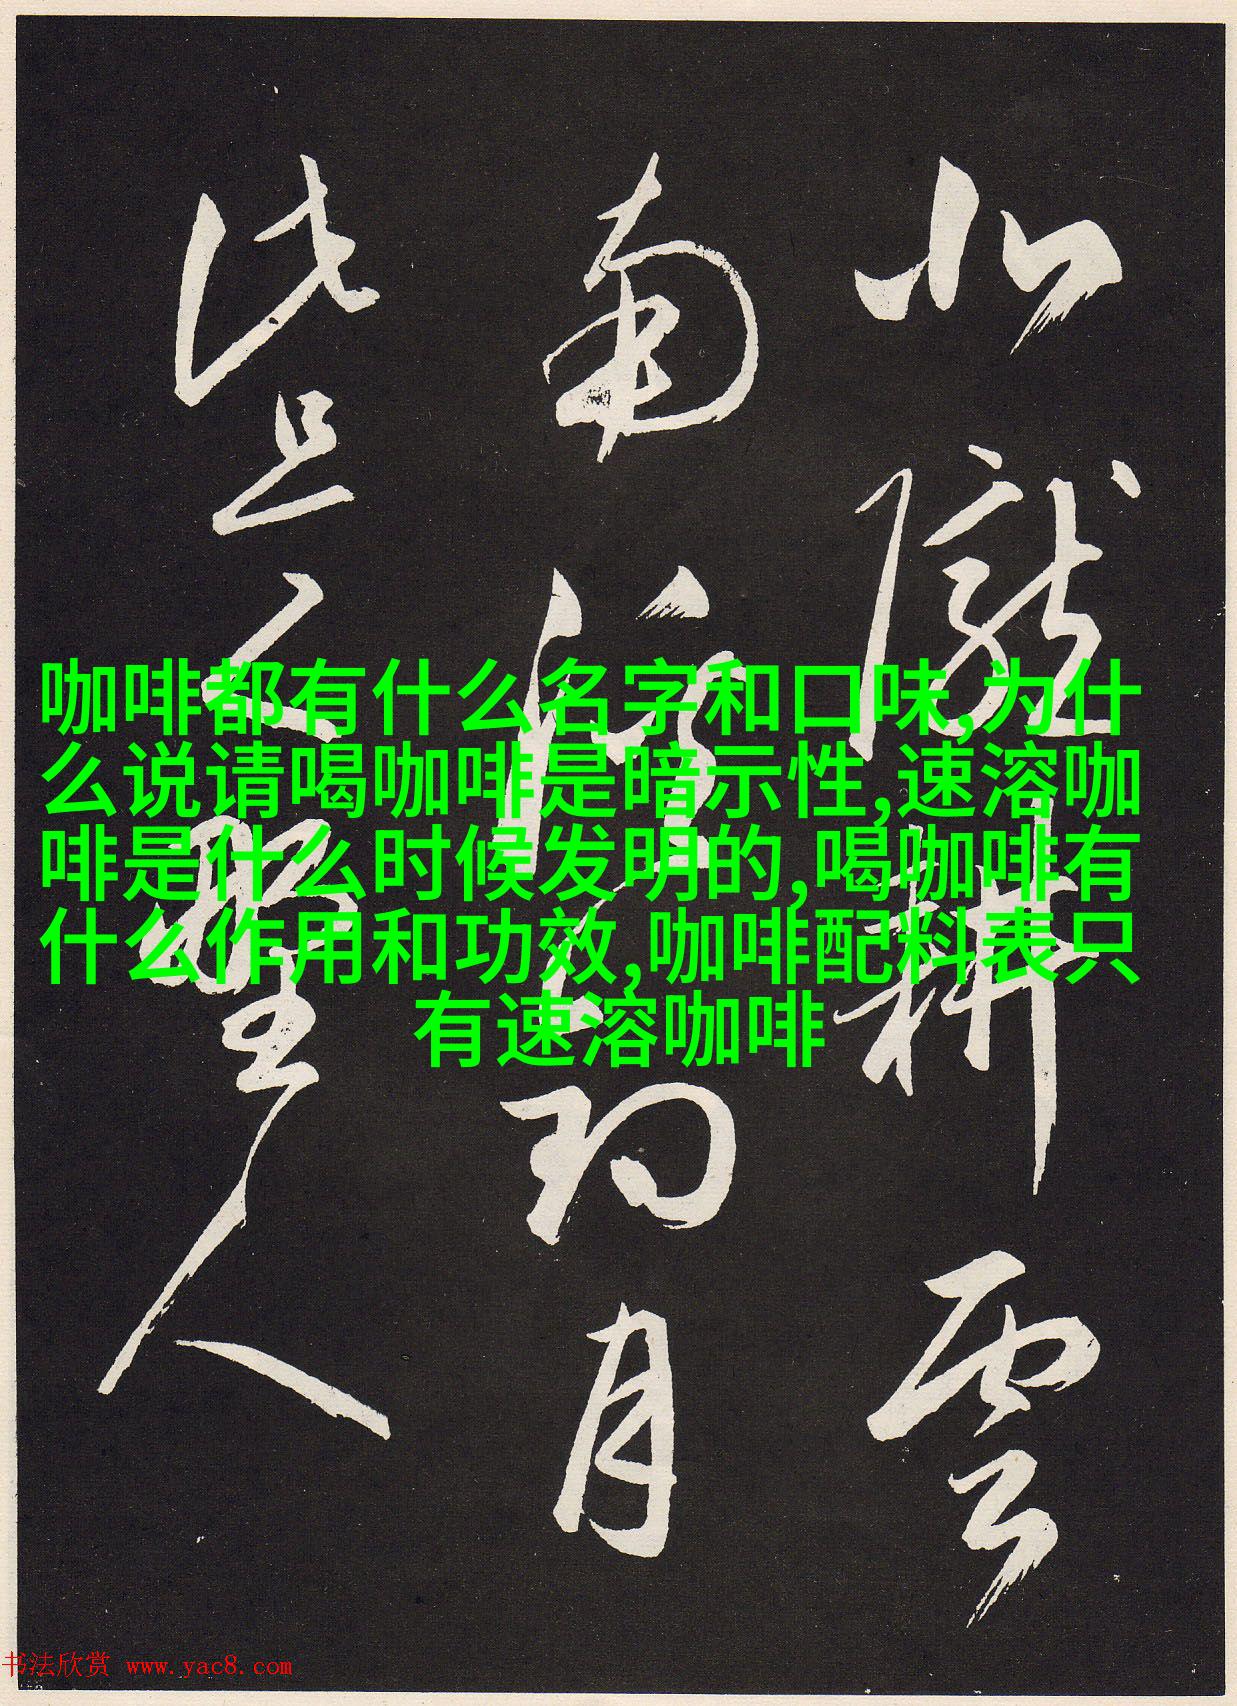 北隴耕雲
南溪釣月
此是野人
咖啡都有什么名字和口味,为什
么说请喝咖啡是暗示性,速溶咖
啡是什么时候发明的,喝咖啡有
什么作用和功效,咖啡配料表只
有速溶咖啡
书法欣赏 www.yac8.com